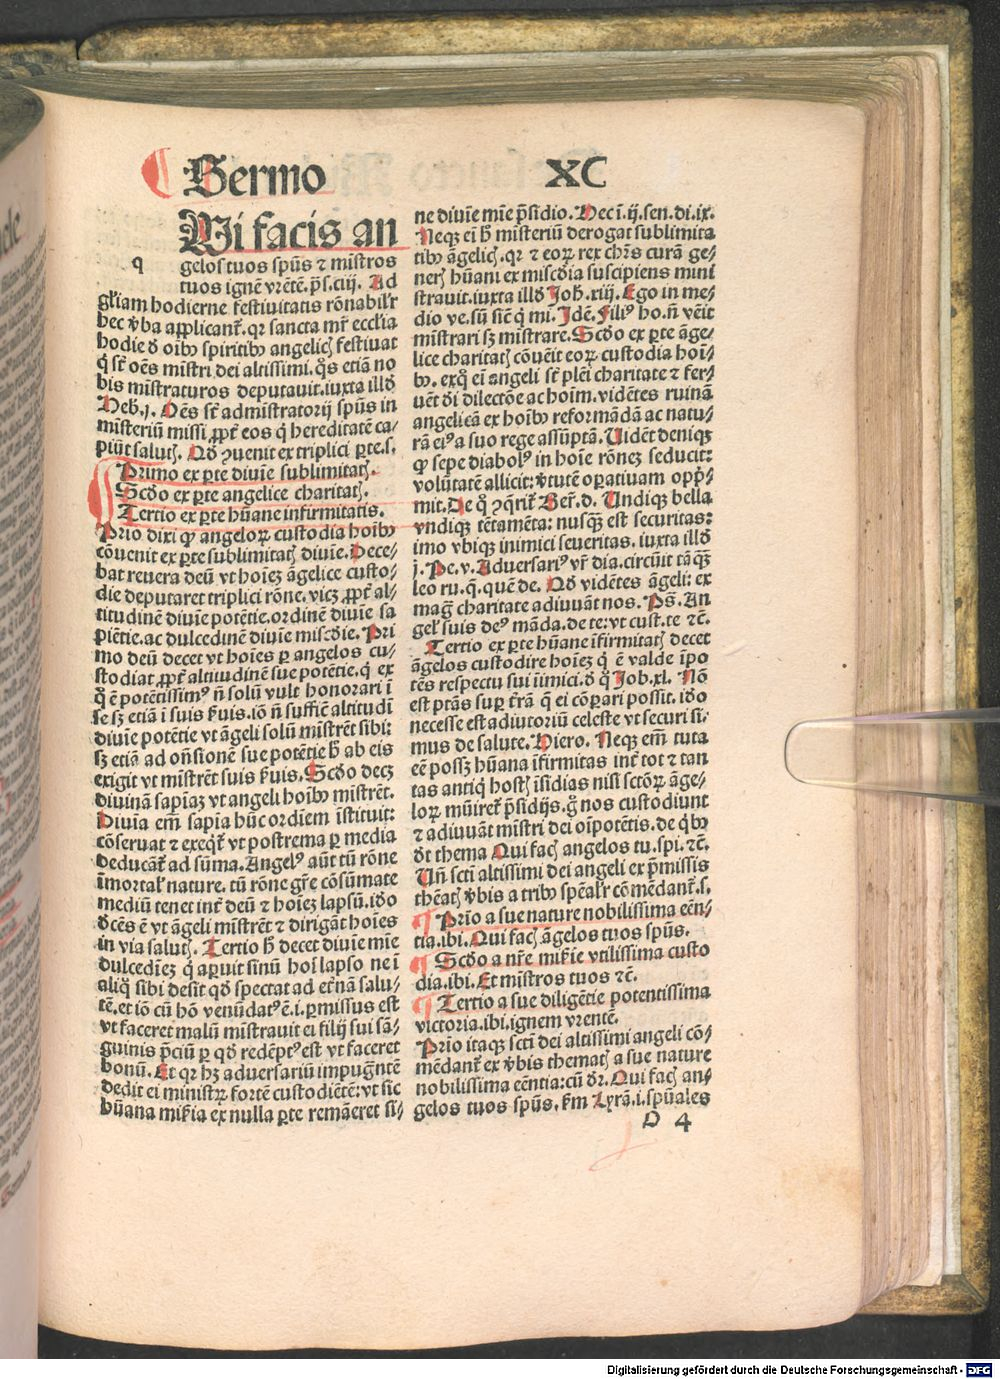 Sermo XC
Ui facis an
q gelos tuos spūs ⁊ mīstros
tuos ignē vrētē. ps̄. ciij. Ad
gl̄iam hodierne festiuitatis rōnabilr̄
hec v̓ba applicant̄. qr sancta mr̄ eccl̄ia
hodie d̓ oībꝰ spiritibꝰ angelicꝭ festiuat
q̇ st̄ oēs mīstri dei altissimi. q̊s etiā no
bis mīstraturos deputauit. iuxta illd̓
Heb. j. Oēs st̄ admīstratorij spūs in
mīsteriū missi, ꝓpt̄ eos q̇ hereditatē ca⸗
piūt salutꝭ. Qd̓ ꝯuenit ex triplici ꝑte. s.
Primo ex ꝑte diuīe sublimitatꝭ.
Scd̓o ex ꝑte angelice charitatꝭ.
Tertio ex ꝑte hūane infirmitatis.
Prīo dixi ꝙ angeloꝝ custodia hoībꝰ
cōuenit ex ꝑte sublimitatꝭ diuīe. Dece⸗
bat reuera deū vt hoīeꝫ āgelice custo⸗
die deputaret triplici rōne. vicꝫ ꝓpt̄ al⸗
titudinē diuīe potētie. ordinē diuīe sa
pīētie. ac dulcedinē diuīe mīsc̄die. Pri
mo deū decet vt hoīes ꝑ angelos cu⸗
stodiat, ꝓpt̄ altiudinē sue potētie. q̇ ex
q̊ ē potētissimꝰ n̄ solū vult honorari ī
se sꝫ etiā ī suis ẜuis. iō n̄ suffic̄ altitudī
diuīe potētie vt āgeli solū mīstrēt sibi:
sꝫ etiā ad on̄sionē sue potētie h̄ ab eis
exigit vt mīstrēt suis ẜuis. Scd̓o decꝫ
diuinā sapīaꝫ vt angeli hoībꝰ mīstrēt.
Diuīa em̄ sapīa hūc ordīem īstituit:
cōseruat ⁊ exeqt̄ vt postrema ꝑ media
deducāt̄ ad sūma. Angelꝰ aūt tū rōne
īmortal̄ nature. tū rōne gr̄e cōsūmate
mediū tenet int̄ deū ⁊ hoīeꝫ lapsū. id̓o
d̓cēs ē vt āgeli mīstrēt ⁊ dirigāt hoīes
in via salutꝭ. Tertio h̄ decet diuīe mīe
dulcedīeꝫ q̇ aꝑuit sinū hoī lapso ne ī
aliq̊ sibi desit qd̓ spectad ad et̄nā salu⸗
tē. et iō cū hō venūdatꝰ ē. i. ꝑmissus est
vt faceret malū mīstrauit ei filij sui sā⸗
guinis p̄ciū ꝑ qd̓ redēptꝰ est vt faceret
bonū. Et qr hꝫ aduersariū impugn̄tē
dedit ei ministrꝝ fortē custodiētē: vt sic
hūana mīẜia ex nulla ꝑte remāeret si⸗
ne diuīe mīe p̄sidio. Hec ī. ij. sen. di. ix.
Neqꝫ eī h̄ misteriū derogat sublimita
tibꝰ āgelicꝭ. qr ⁊ eoꝝ rex chr̄s curā ge⸗
nerꝭ hūani ex misc̄dia suscipiens mini
strauit. iuxta illd̓ Joh̄. xiij. Ego in me⸗
dio ve. sū sic̄ q̇ mi. Jdē. Filiꝰ ho. n̄ vēit
mīstrari sꝫ mīstrare. Scd̓o ex ꝑte āge⸗
lice charitatꝭ cōuēit eoꝝ custodia hoī⸗
bꝰ. exq̊ eī angeli st̄ plēi charitate ⁊ fer⸗
uēt d̓i dilectōe ac hoīm. vidētes ruinā
angelicā ex hoībꝰ reformādā ac natu⸗
rā eiꝰ a suo rege assūptā. Uidēt deniqꝫ
ꝙ sepe diabolꝰ in hoīe rōneꝫ seducit:
volūtatē allicit: v̓tutē oꝑatiuam opp̄⸗
mit. De q̊ ꝯq̄rit̄ Ber̄. d. Undiqꝫ bella
vndiqꝫ tētamēta: nusqꝫ est securitas:
imo vbiqꝫ inimici seueritas. iuxta illd̓
j. Pe. v. Aduersariꝰ vr̄ dia. circuit tāqꝫ
leo ru. q. quē de. Qd̓ vidētes āgeli: ex
mag̅ charitate adiuuāt nos. Ps̄. An
gel̄ suis deꝰ māda. de te: vt cust. te ⁊c̄.
Tertio ex ꝑte hūane īfirmitatꝭ decet
āgelos custodire hoīeꝫ q̇ ē valde īpo
tēs respectu sui iīmici. d̓ q̊ Job. xl. Nō
est ptās suꝑ t̄rā q̄ ei cōꝑari possit. id̓o
necesse est adiutoriū celeste vt securi si⸗
mus de salute. Hiero. Neqꝫ em̄ tuta
eē possꝫ hūana īfirmitas int̄ tot ⁊ tan
tas antiq̇ hostꝭ īsidias nisi sctōꝝ āge⸗
loꝝ mūiret̄ p̄sidijs. g̊ nos custodiunt
⁊ adiuuāt mīstri dei oīpotētis. de qb̄ꝰ
d̓t thema Qui facꝭ angelos tu. spi. ⁊c̄.
Uñ sctī altissimi dei angeli ex p̄missis
thēatꝭ v̓bis a tribꝰ spēalr̄ cōmēdant̄. s.
Prīo a sue nature nobilissima eēn⸗
tia. ibi. Qui facꝭ āgelos tuos spūs.
Scd̓o a nr̄e mīẜie vtilissima custo
dia. ibi. Et mīstros tuos ⁊c̄.
Tertio a sue diligētie potentissima
victoria. ibi. ignem vrentē.
Prīo itaqꝫ sctī dei altissimi angeli cō⸗
mēdant̄ ex v̓bis thematꝭ a sue nature
nobilissima eēntia: cū d̓r. Qui facꝭ an⸗
gelos tuos spūs. ẜm Lyrā. i. spūales
D 4
Digitalisierung gefördert durch die Deutsche Forschungsgemeinschaft - DFG